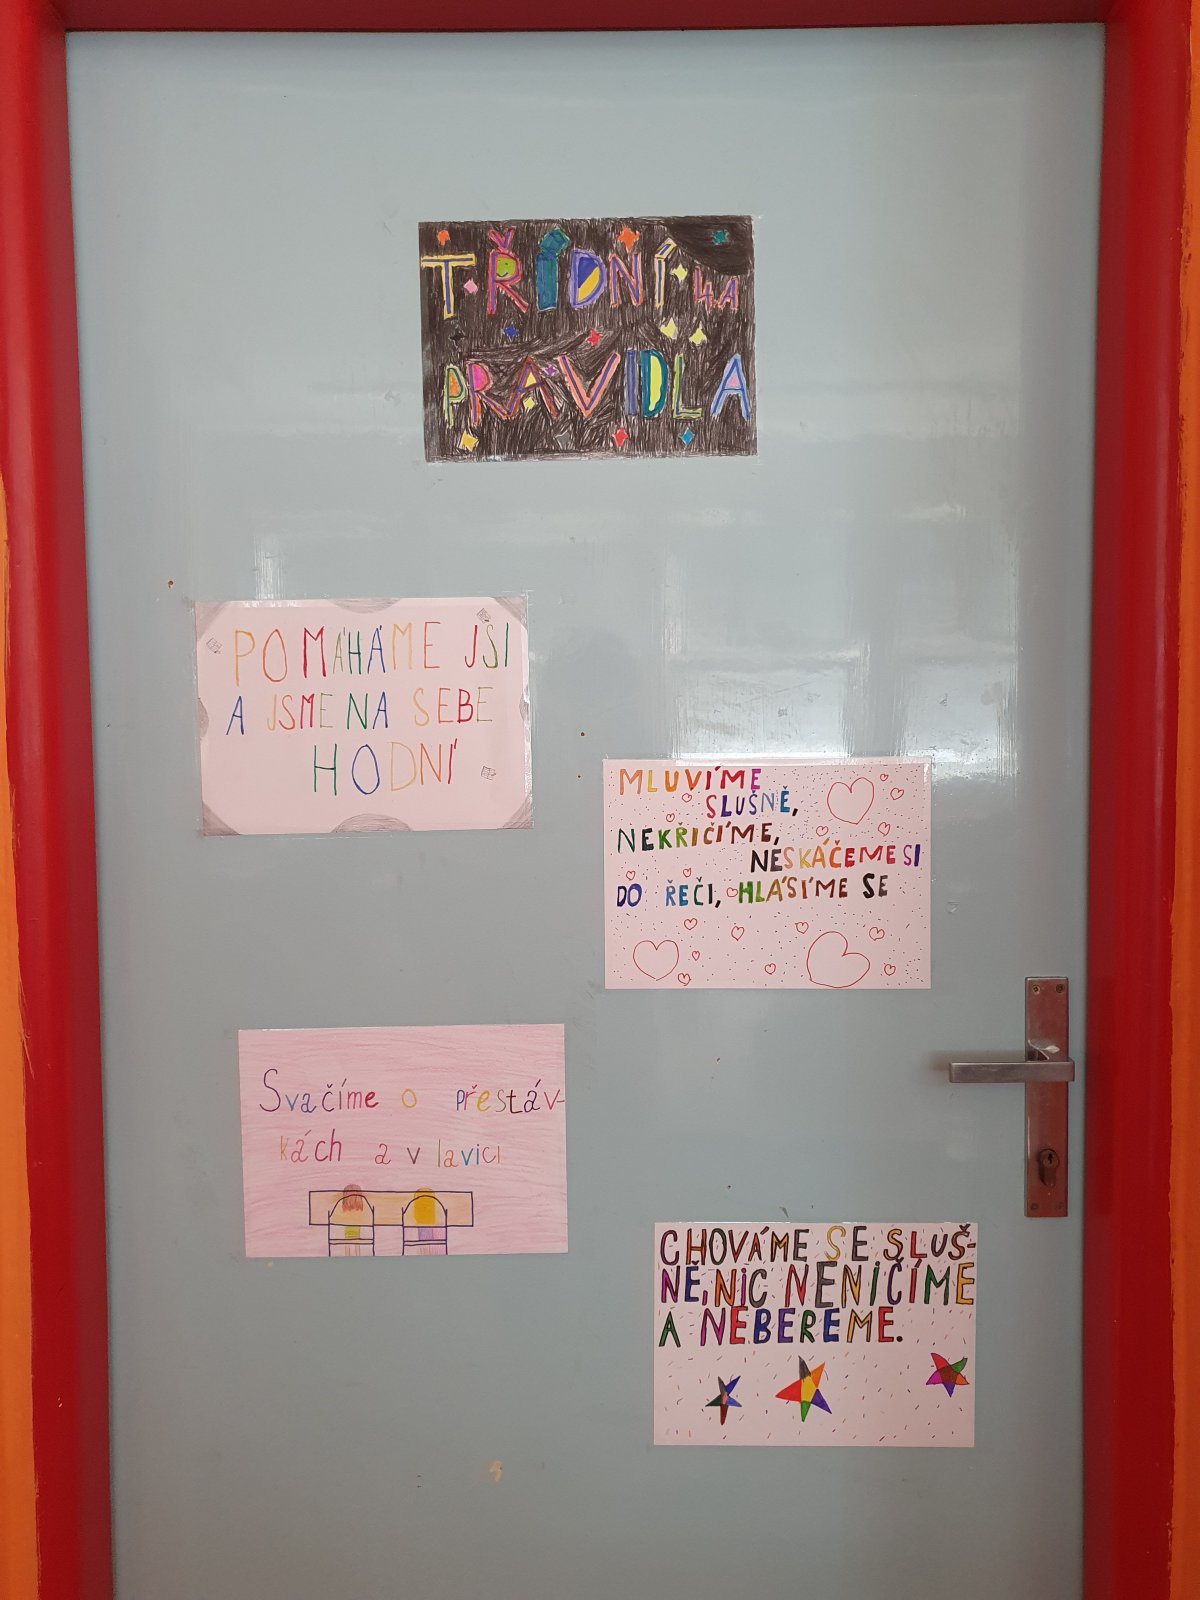 TŘÍDNÍ 4.A
PRAVIDLA
POMÁHÁME JSI
A JSME NA SEBE
HODNÍ
MLUVÍME
SLUŠNĚ,
NEKŘIČÍME,
NESKÁČEME SI
DO ŘEČI, HLÁSÍME SE
Svačíme o přestáv-
kách a v lavici
CHOVÁME SE SLUŠ-
NĚ, NIC NENIČÍME
A NEBEREME.